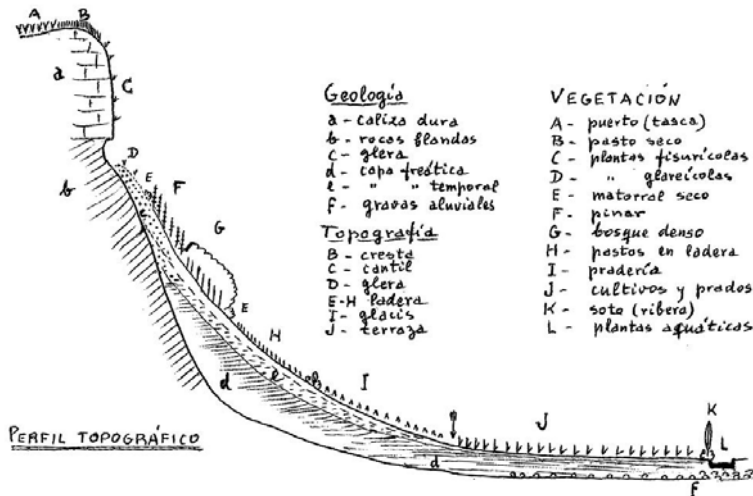 A
B
a
C
b
D
E
F
G
E
H
I
d
e
J
K
L
d
f
PERFIL TOPOGRÁFICO
Geología
a - caliza dura
b - rocas blandas
c - glera
d - capa freática
e - " " temporal
f - gravas aluviales
Topografía
B - cresta
C - cantil
D - glera
E-H ladera
I - glacis
J - terraza
VEGETACIÓN
A - puerto (tasca)
B - pasto seco
C - plantas fisurícolas
D - " glareícolas
E - matorral seco
F - pinar
G - bosque denso
H - pastos en ladera
I - pradería
J - cultivos y prados
K - soto (ribera)
L - plantas acuáticas